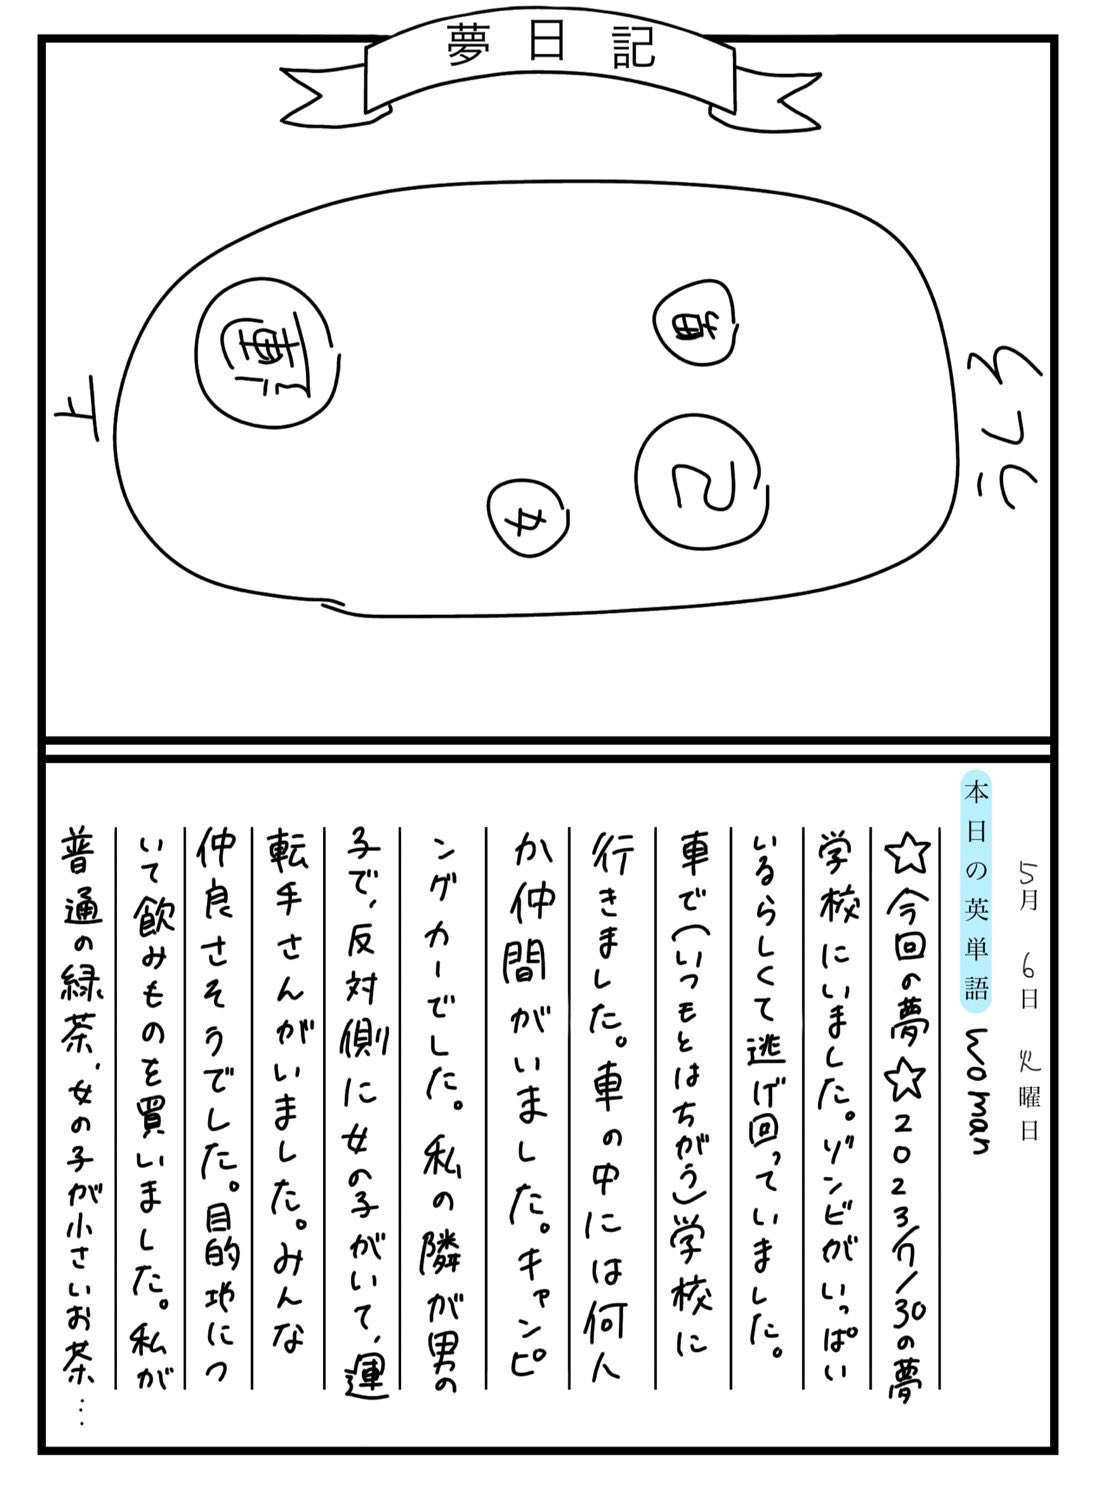 夢日記
上
運
男
己
女
うしろ
5月 6日 火曜日
本日の英単語 woman
☆今回の夢☆2023/7/30の夢
学校にいました。ゾンビがいっぱい
いるらしくて逃げ回っていました。
車で(いつもとはちがう)学校に
行きました。車の中には何人
か仲間がいました。キャンピ
ングカーでした。私の隣が男の
子で、反対側に女の子がいて、運
転手さんがいました。みんな
仲良さそうでした。目的地につ
いて飲みものを買いました。私が
普通の緑茶、女の子が小さいお茶…